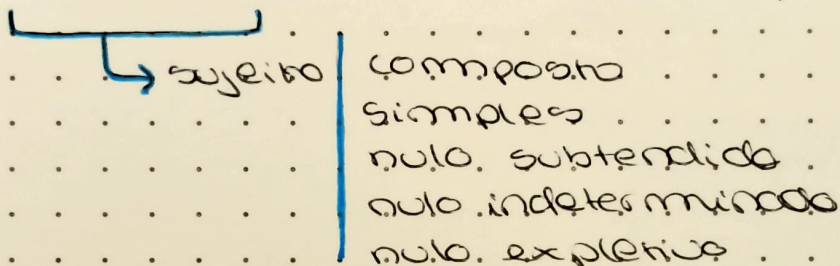 sujeito
composto
simples
nulo subtendido
nulo indeterminado
nulo expletivo